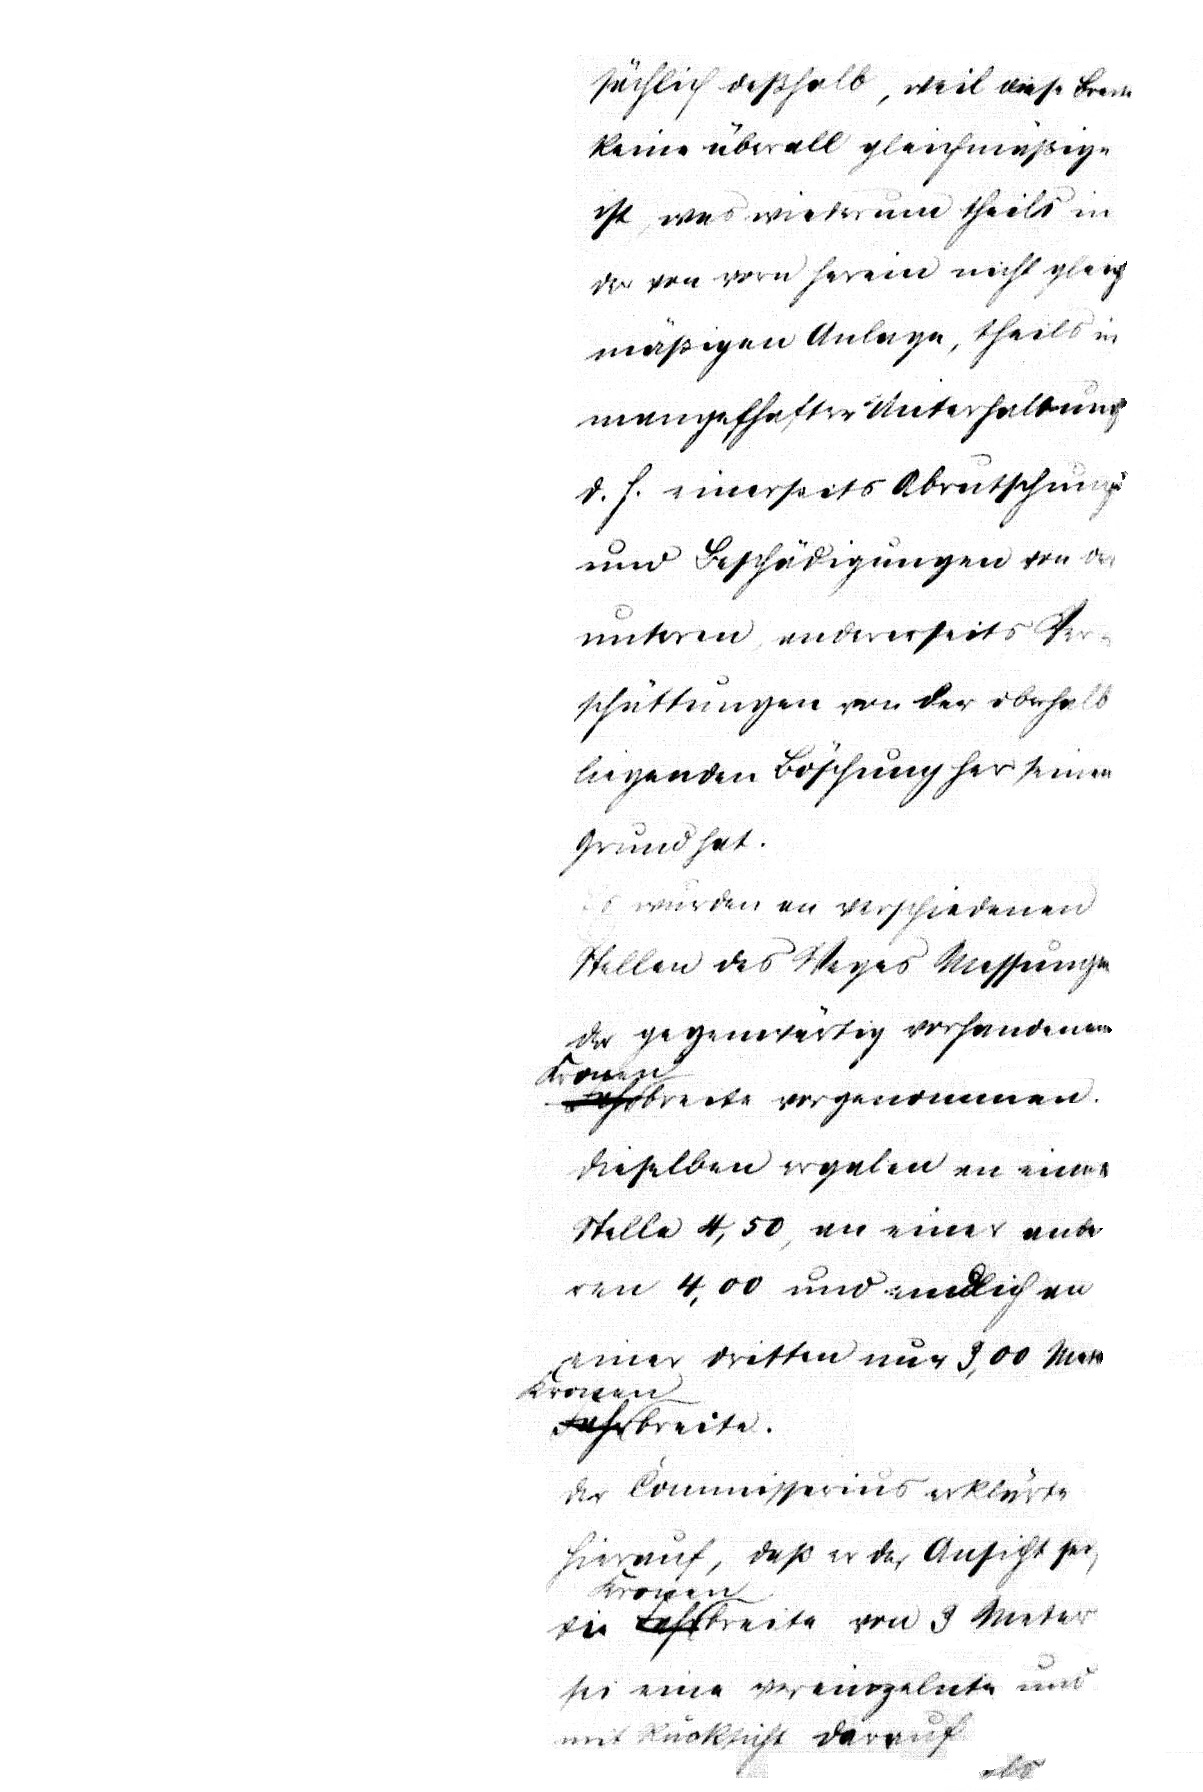 sächlich deßhalb, weil diese Breite
keine überall gleichmäßige
ist, was wiederum theils in
der von vorn herein nicht gleich
mäßigen Anlage, theils in
mangelhafter Unterhaltung
d. h. einerseits Abrutschung
und Beschädigungen von der
unteren, andererseits Ver-
schüttungen von der oberhalb
liegenden Böschung her seinen
Grund hat.
Es wurden an verschiedenen
Stellen des Weges Messungen
der gegenwärtig vorhandenen
Kronen
Fahrbreite vorgenommen.
Dieselben ergaben an einer
Stelle 4,50, an einer ande
ren 4,00 und endlich an
einer dritten nur 3,00 Meter
Kronen
Fahrbreite.
Der Commissarius erklärte
hierauf, daß er der Ansicht sei,
Kronen
die Fahrbreite von 3 Meter
sei eine vereinzelnte und
mit Rücksicht darauf